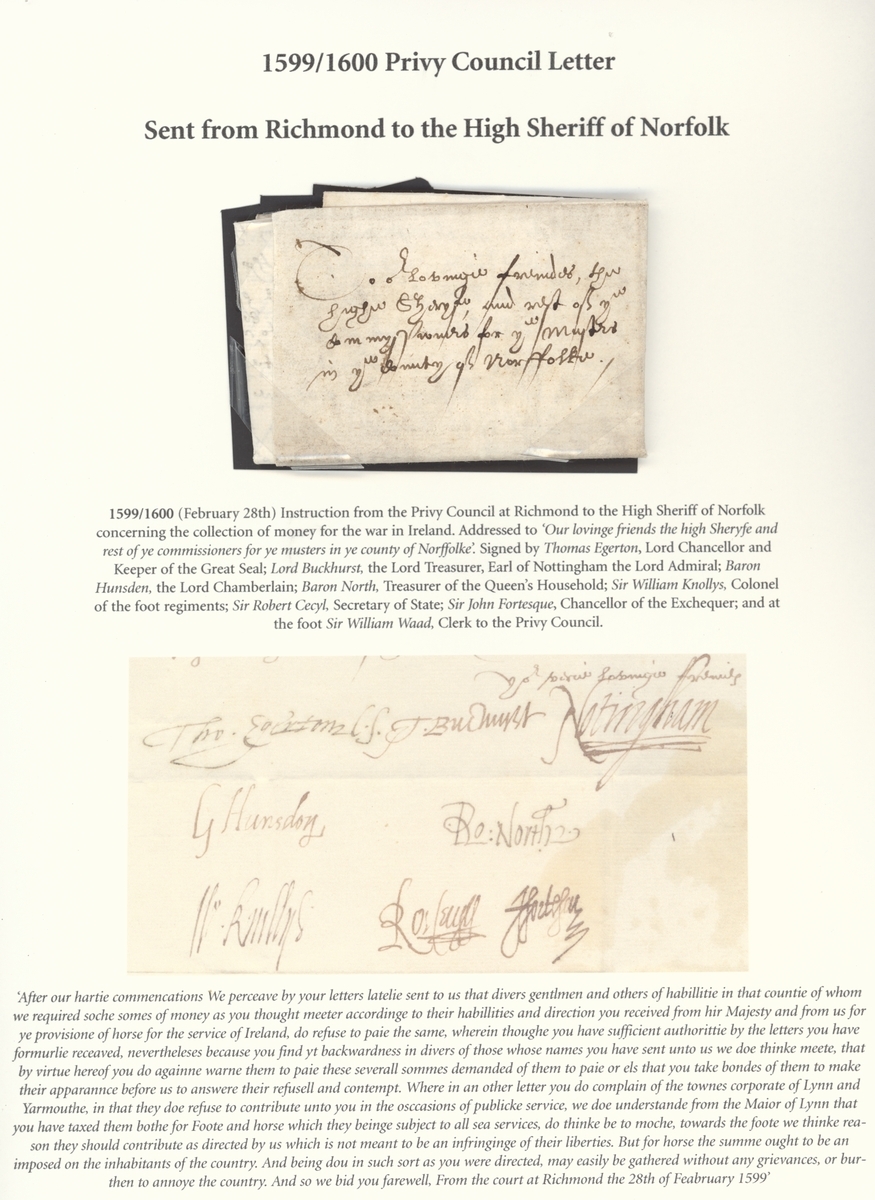 1599/1600 Privy Council Letter
Sent from Richmond to the High Sheriff of Norfolk
To oʳ lovingie freindes, the
highe Sheryfe, and rest of yᵉ
commyssioners for yᵉ Musters
in yᵉ County of Norffolke.
1599/1600 (February 28th) Instruction from the Privy Council at Richmond to the High Sheriff of Norfolk
concerning the collection of money for the war in Ireland. Addressed to ‘Our lovinge friends the high Sheryfe and
rest of ye commissioners for ye musters in ye county of Norffolke’. Signed by Thomas Egerton, Lord Chancellor and
Keeper of the Great Seal; Lord Buckhurst, the Lord Treasurer, Earl of Nottingham the Lord Admiral; Baron
Hunsden, the Lord Chamberlain; Baron North, Treasurer of the Queen’s Household; Sir William Knollys, Colonel
of the foot regiments; Sir Robert Cecyl, Secretary of State; Sir John Fortesque, Chancellor of the Exchequer; and at
the foot Sir William Waad, Clerk to the Privy Council.
yoʳ lovinge freinds
Tho. Egerton C.S. T. Buchurst Notingham
G Hunsdon Ro: North
W. Knollys Ro: Cecyll J Fortescu
‘After our hartie commencations We perceave by your letters latelie sent to us that divers gentlmen and others of habillitie in that countie of whom
we required soche somes of money as you thought meeter accordinge to their habillities and direction you received from hir Majesty and from us for
ye provisione of horse for the service of Ireland, do refuse to paie the same, wherein thoughe you have sufficient authorittie by the letters you have
formurlie receaved, nevertheleses because you find yt backwardness in divers of those whose names you have sent unto us we doe thinke meete, that
by virtue hereof you do againne warne them to paie these severall sommes demanded of them to paie or els that you take bondes of them to make
their apparannce before us to answere their refusell and contempt. Where in an other letter you do complain of the townes corporate of Lynn and
Yarmouthe, in that they doe refuse to contribute unto you in the osccasions of publicke service, we doe understande from the Maior of Lynn that
you have taxed them bothe for Foote and horse which they beinge subject to all sea services, do thinke be to moche, towards the foote we thinke rea-
son they should contribute as directed by us which is not meant to be an infringinge of their liberties. But for horse the summe ought to be an
imposed on the inhabitants of the country. And being dou in such sort as you were directed, may easily be gathered without any grievances, or bur-
then to annoye the country. And so we bid you farewell, From the court at Richmond the 28th of Feabruary 1599’